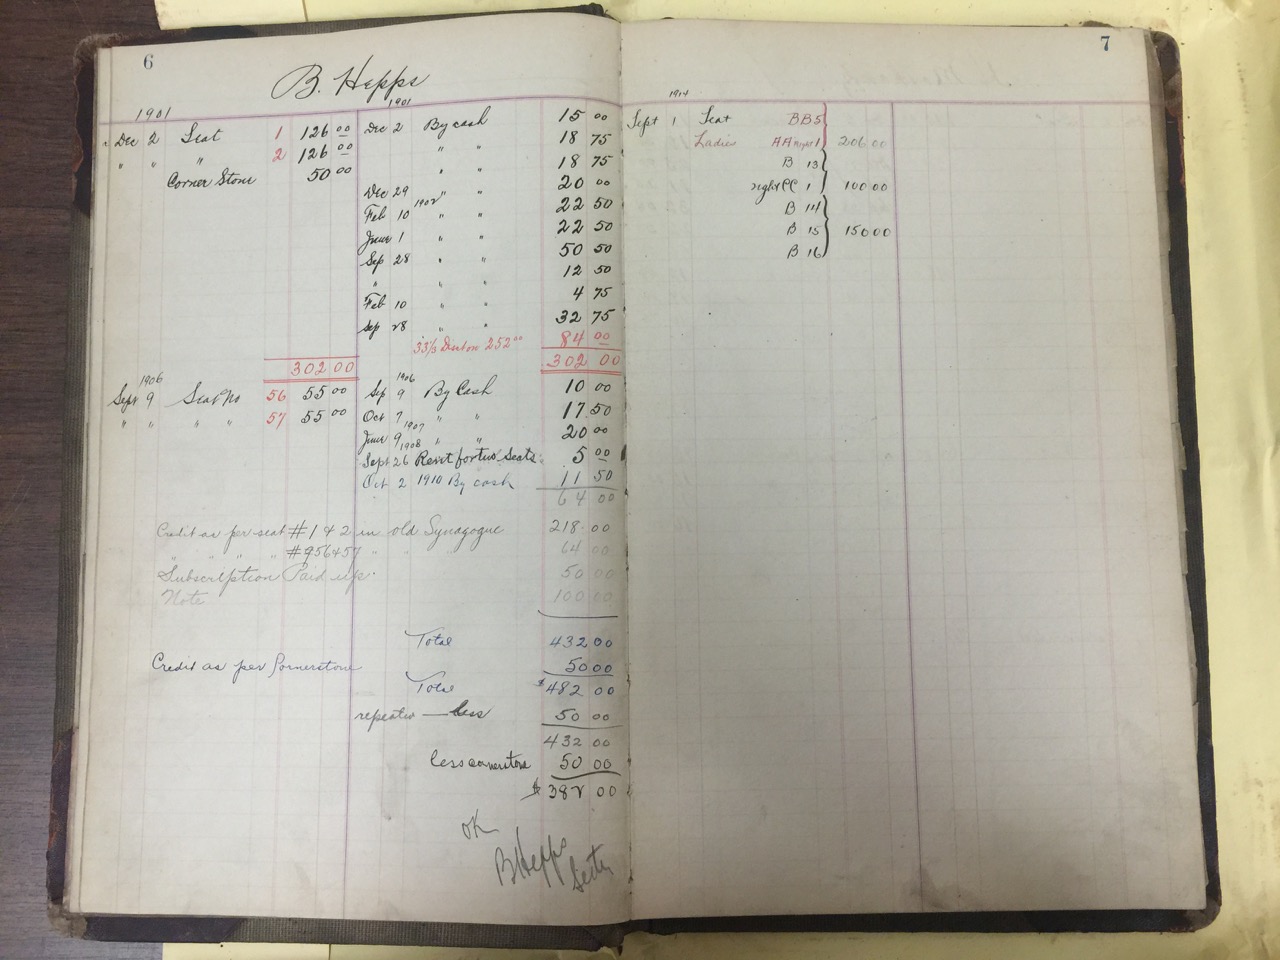 6
B. Hepps
1901 1901
Dec 2 Seat 1 126 00 Dec 2 By cash 15 00
" " " 2 126 00 " " 18 75
Corner Stone 50 00 " " 18 75
Dec 29 " " 20 00
Feb 10 1902 " " 22 50
June 1 " " 22 50
Sep 28 " " 50 50
" " " 12 50
Feb 10 " " 4 75
Sep 28 " " 32 75
33 1/3 252 00 84 00
302 00 302 00
1906 1906
Sept 9 Seat No 56 55 00 Sep 9 By Cash 10 00
" " " " 57 55 00 Oct 7 " " 17 50
1907
June 9 " " 20 00
1908
Sept 26 Rent for two Seats 5 00
Oct 2 1910 By cash 11 50
64 00
Credit as per seat #1 & 2 in old Synagogue 218 00
" " " " #956&57 " " " 64 00
Subscription Paid up. 50 00
Note 100 00
Total 432 00
Credit as per Cornerstone 50 00
Total $482 00
less 50 00
432 00
less cornerstone 50 00
$ 382 00
OK
B Hepps
Secty
7
1914
Sept 1 Seat BB 5
Ladies AA Right 1 206 00
B 13
right CC 1 100 00
B 14
B 15 150 00
B 16